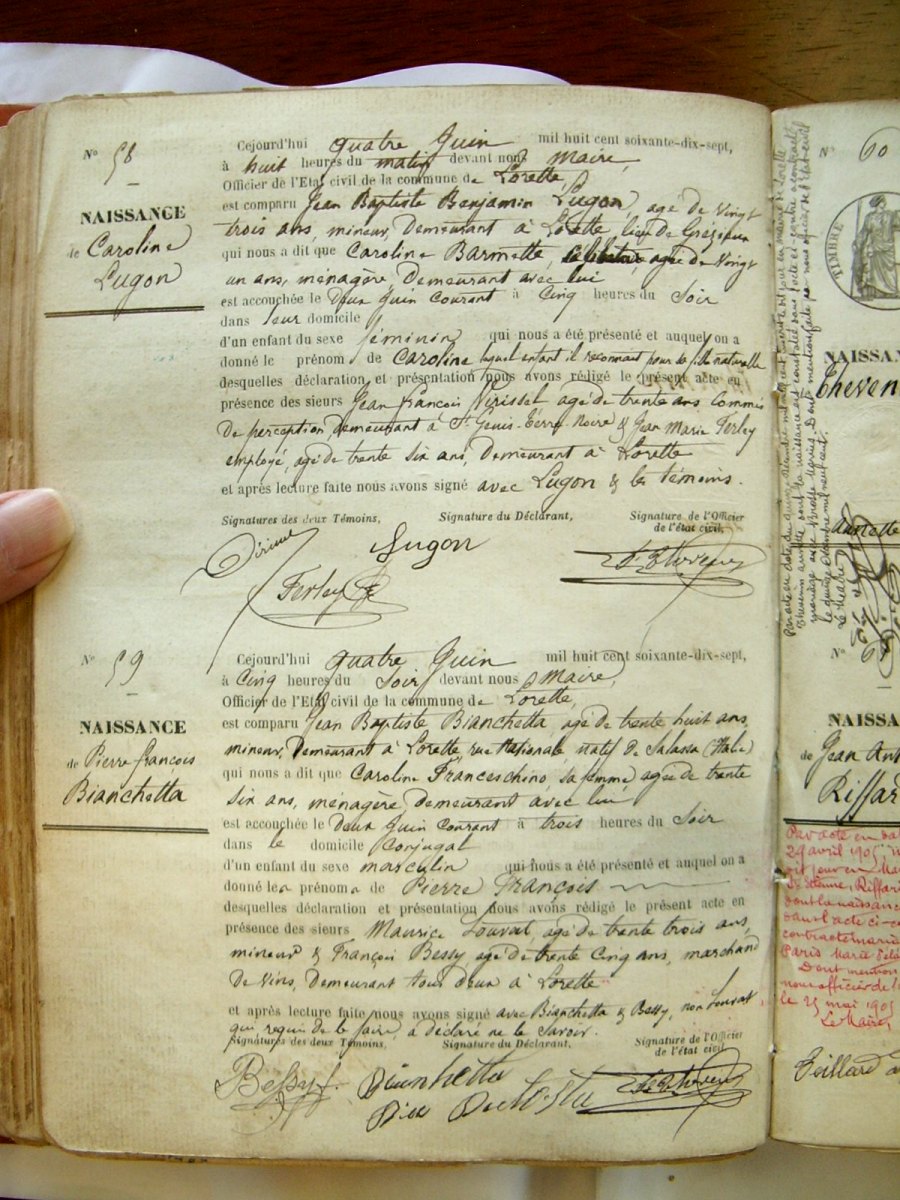 N° 58
NAISSANCE
de Caroline
Lugon
Cejourd'hui quatre Juin mil huit cent soixante-dix-sept,
à huit heures du matin devant nous Maire,
Officier de l'Etat civil de la commune de Lorette,
est comparu Jean Baptiste Benjamin Lugon, agé de Vingt
trois ans, mineur, Demeurant à Lorette, lieu de Grézieux
qui nous a dit que Caroline Barmette, célibataire, agée de Vingt
un ans, ménagère, Demeurant avec lui
est accouchée le Deux Juin courant à Cinq heures du Soir
dans leur domicile
d'un enfant du sexe féminin qui nous a été présenté et auquel on a
donné le prénom de Caroline lequel enfant il reconnait pour sa fille naturelle
desquelles déclaration et présentation nous avons rédigé le présent acte en
présence des sieurs Jean François agé de trente ans Commis
De perception, demeurant à St Genis-Terre-Noire & Jean Marie Ferley
employé, agé de trente six ans, Demeurant à Lorette
et après lecture faite nous avons signé avec Lugon & les témoins.
Signatures des deux Témoins, Signature du Déclarant, Signature de l'Officier
de l'état civil,
Lugon
Ferley
N° 59
NAISSANCE
de Pierre françois
Bianchetta
Cejourd'hui quatre Juin mil huit cent soixante-dix-sept,
à Cinq heures du Soir devant nous Maire,
Officier de l'Etat civil de la commune de Lorette,
est comparu Jean Baptiste Bianchetta, agé de trente huit ans,
mineur, Demeurant à Lorette rue Nationale, natif de Salassa (Italie)
qui nous a dit que Caroline Franceschino, sa femme, agée de trente
six ans, ménagère, demeurant avec lui
est accouchée le Deux Juin courant à trois heures du Soir
dans le domicile Conjugal
d'un enfant du sexe masculin qui nous a été présenté et auquel on a
donné les prénoms de Pierre François
desquelles déclaration et présentation nous avons rédigé le présent acte en
présence des sieurs Maurice Louvat agé de trente trois ans,
mineur & François Bessy agé de trente Cinq ans, marchand
De Vins, Demeurant tous deux à Lorette
et après lecture faite nous avons signé avec Bianchetta & Bessy, non Louvat
qui requis de le faire, a déclaré ne le Savoir.
Signatures des deux Témoins, Signature du Déclarant, Signature de l'Officier
de l'état civil
Bessy f. Bianchetta
N° 60
TIMBRE
NAISSAN
Theven
N° 61
NAISSA
de Jean Ant
Riffar
Par acte en da
29 avril 1905,
St Etienne, Riffar
dont la naissance
dans l'acte ci-co
contracté maria
Paris Marie
Dont mention
nous officier de l
le 25 mai 1905
Le Maire,